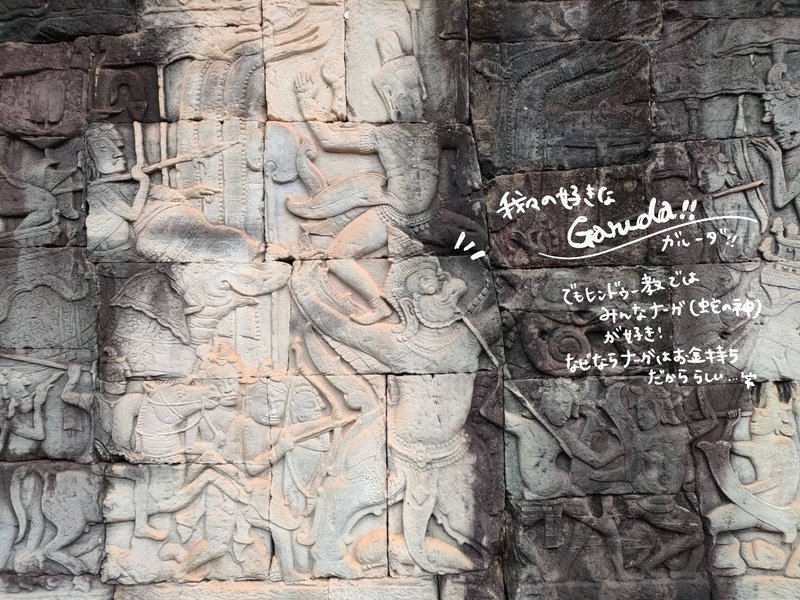 我々の好きな
Garuda!!
ガルーダ!!
でもヒンドゥー教では
みんなナーガ(蛇の神)
が好き!
なぜならナーガはお金持ち
だかららしい…笑